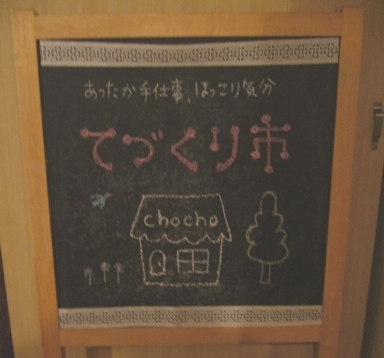 あったか手仕事、ほっこり気分
てづくり市
chocho